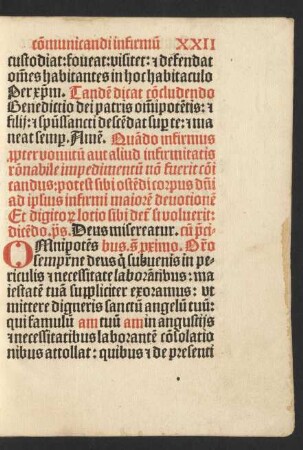 cōmunicandi infirmū XXII
custodiat: foueat: visitet: ⁊ defendat
oēs habitantes in hoc habitaculo
Per xp̄m. Tandē dicat cōcludendo
Benedictio dei patris omīpotētis: ⁊
filij: ⁊ spūssancti descēdat sup te: ⁊ ma
neat semp. Amē. Quādo infirmus
propter vomitū aut aliud infirmitatis
rōnabile impedimentū nō fuerit cōi
candus: potest sibi ostēdi corpus dn̄i
ad ipsius infirmi maiorē deuotionē
Et digitorū lotio sibi det̄ si voluerit:
dicēdo. ps̄. Deus misereatur. cū p̄ci-
OMnipotēs bus. s̄ proximo. Or̄o
sempit̄ne deus q̄ subuenis in pe-
riculis ⁊ necessitate laborātibus: ma
iestatē tuā suppliciter exoramus: vt
mittere digneris sanctū angelū tuū:
qui famulū am tuū am in angustijs
⁊ necessitatibus laborantē cōsolatio
nibus attollat: quibus ⁊ de presenti